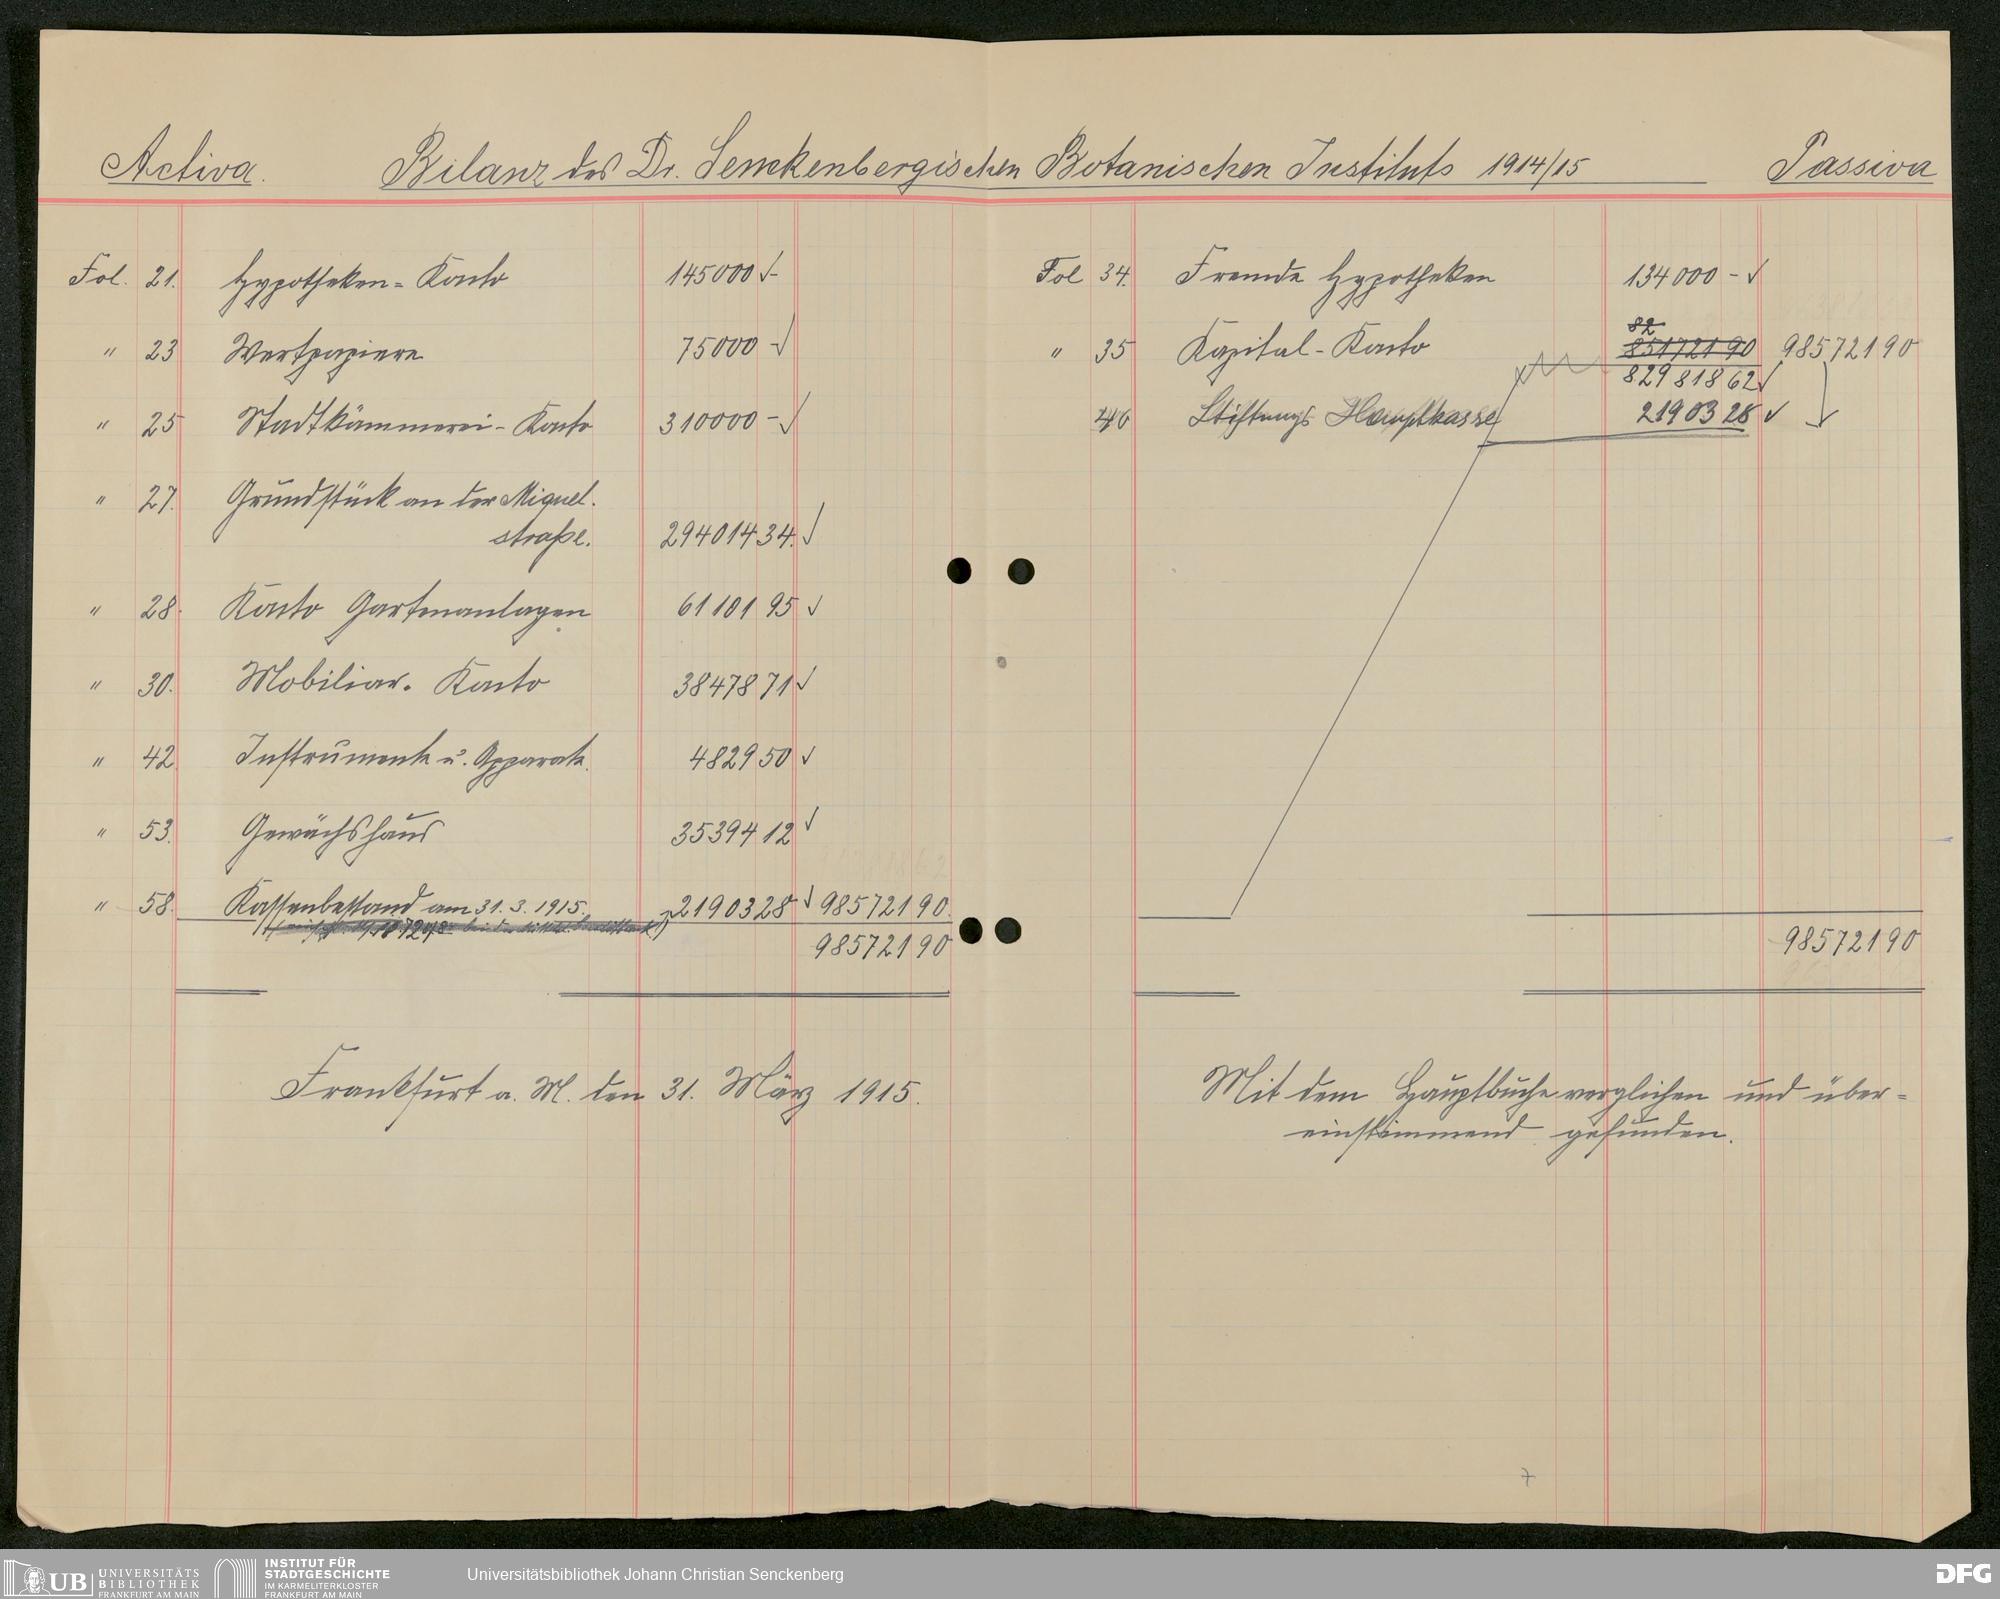 Activa. Bilanz des Dr. Senckenbergischen Botanischen Instituts 1914/15 Passiva
Fol. 21. Hypotheken-Konto 145000 -
" 23 Wertpapiere 75000 -
" 25 Stadtkämmerei-Konto 310000 -
" 27. Grundstück an der Miquel-
straße. 294014 34.
" 28. Konto Gartenanlagen 61101 95
" 30. Mobiliar-Konto 38478 71
" 42. Instrumente u. Apparate. 4829 50
" 53. Gewächshaus 35394 12
" 58. Kassenbestand am 31.3.1915. 21903 28 985721 90.
985721 90
Frankfurt a. M. den 31. März 1915.
Fol 34. Fremde Hypotheken 134000 -
82
" 35 Kapital-Konto 851721 90 985721 90
829818 62
46 Stiftungs Hauptkasse 21903 28
985721 90
Mit dem Hauptbuche verglichen und über=
einstimmend gefunden.
7
UB UNIVERSITÄTS
BIBLIOTHEK
FRANKFURT AM MAIN
INSTITUT FÜR
STADTGESCHICHTE
IM KARMELITERKLOSTER
FRANKFURT AM MAIN
Universitätsbibliothek Johann Christian Senckenberg
DFG